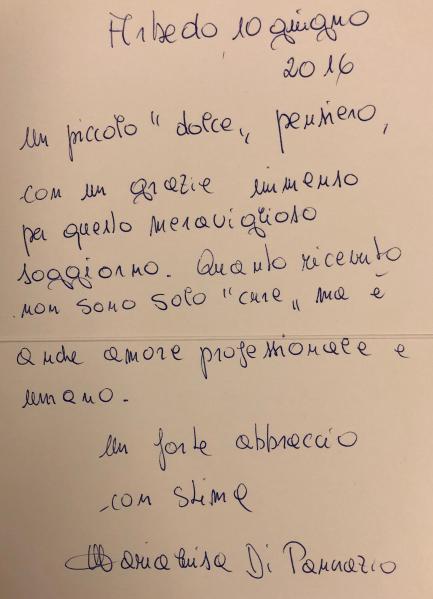 Arbedo 10 giugno
2016
Un piccolo “dolce„ pensiero,
con un grazie immenso
per questo meraviglioso
soggiorno. Quanto ricevuto
non sono solo “cure„ ma è
anche amore professionale e
umano.
Un forte abbraccio
con stima
Marialuisa Di Pannazio